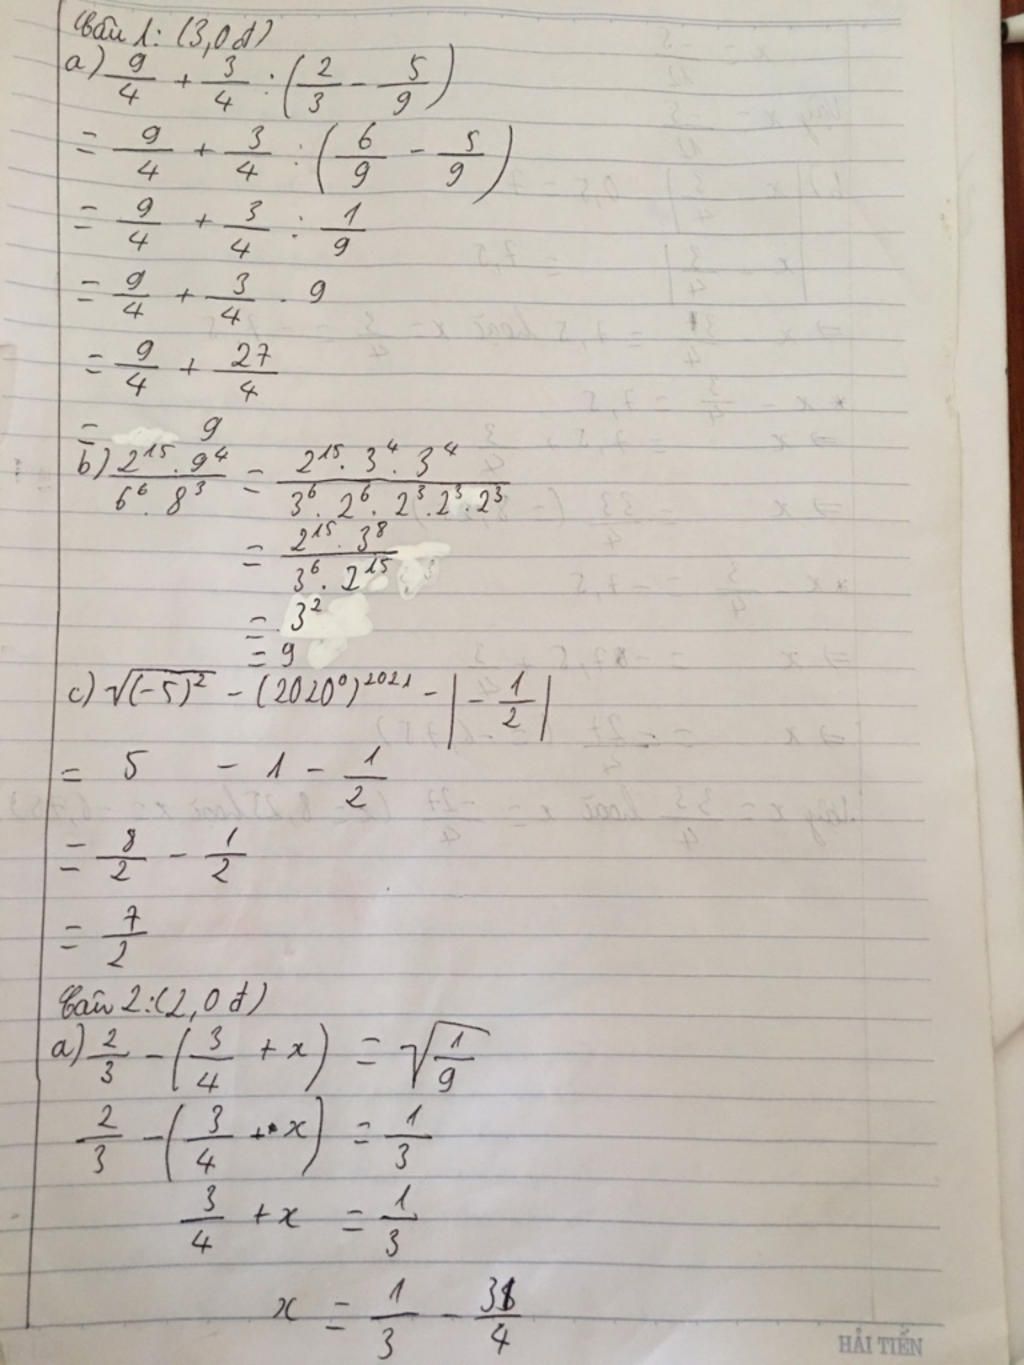 Câu 1: (3,0 đ)
a) 9/4 + 3/4 : (2/3 - 5/9)
= 9/4 + 3/4 : (6/9 - 5/9)
= 9/4 + 3/4 : 1/9
= 9/4 + 3/4 . 9
= 9/4 + 27/4
= 9
b) 2¹⁵ . 9⁴ / 6⁶ . 8³ = 2¹⁵ . 3⁴ . 3⁴ / 3⁶ . 2⁶ . 2³ . 2³ . 2³
= 2¹⁵ . 3⁸ / 3⁶ . 2¹⁵
= 3²
= 9
c) √(-5)² - (2020⁰)²⁰²¹ - |-1/2|
= 5 - 1 - 1/2
= 8/2 - 1/2
= 7/2
Câu 2: (2,0 đ)
a) 2/3 - (3/4 + x) = √1/9
2/3 - (3/4 + x) = 1/3
3/4 + x = 1/3
x = 1/3 - 3/4
HẢI TIẾN